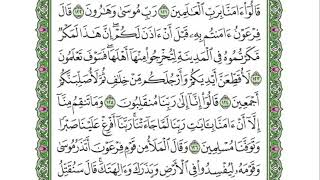 قَالُوٓاْ ءَامَنَّا بِرَبِّ ٱلْعَٰلَمِينَ ١٢١ رَبِّ مُوسَىٰ وَهَٰرُونَ ١٢٢ قَالَ
فِرْعَوْنُ ءَامَنتُم بِهِۦ قَبْلَ أَنْ ءَاذَنَ لَكُمْ إِنَّ هَٰذَا لَمَكْرٌ
مَّكَرْتُمُوهُ فِى ٱلْمَدِينَةِ لِتُخْرِجُواْ مِنْهَآ أَهْلَهَا فَسَوْفَ تَعْلَمُونَ
١٢٣ لَأُقَطِّعَنَّ أَيْدِيَكُمْ وَأَرْجُلَكُم مِّنْ خِلَٰفٍ ثُمَّ لَأُصَلِّبَنَّكُمْ
أَجْمَعِينَ ١٢٤ قَالُوٓاْ إِنَّآ إِلَىٰ رَبِّنَا مُنقَلِبُونَ ١٢٥ وَمَا تَنقِمُ مِنَّآ
إِلَّآ أَنْ ءَامَنَّا بِـَٔايَٰتِ رَبِّنَا لَمَّا جَآءَتْنَا رَبَّنَآ أَفْرِغْ عَلَيْنَا صَبْرًا
وَتَوَفَّنَا مُسْلِمِينَ ١٢٦ وَقَالَ ٱلْمَلَأُ مِن قَوْمِ فِرْعَوْنَ أَتَذَرُ مُوسَىٰ
وَقَوْمَهُۥ لِيُفْسِدُواْ فِى ٱلْأَرْضِ وَيَذَرَكَ وَءَالِهَتَكَ قَالَ سَنُقَتِّلُ